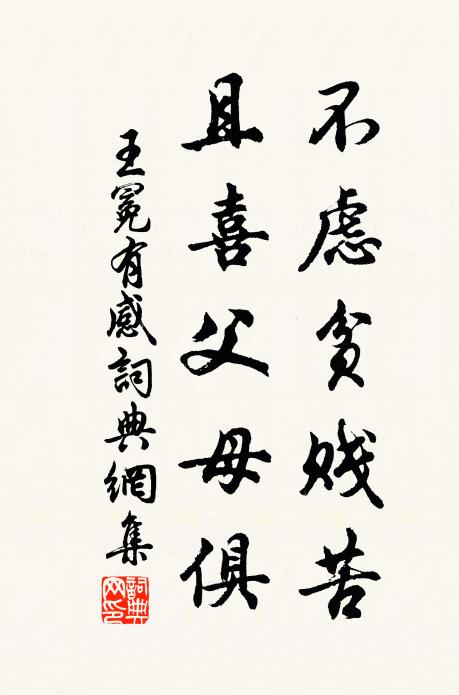 不慮貧賤苦
且喜父母俱
王冕有感詞典網集
詞典網印